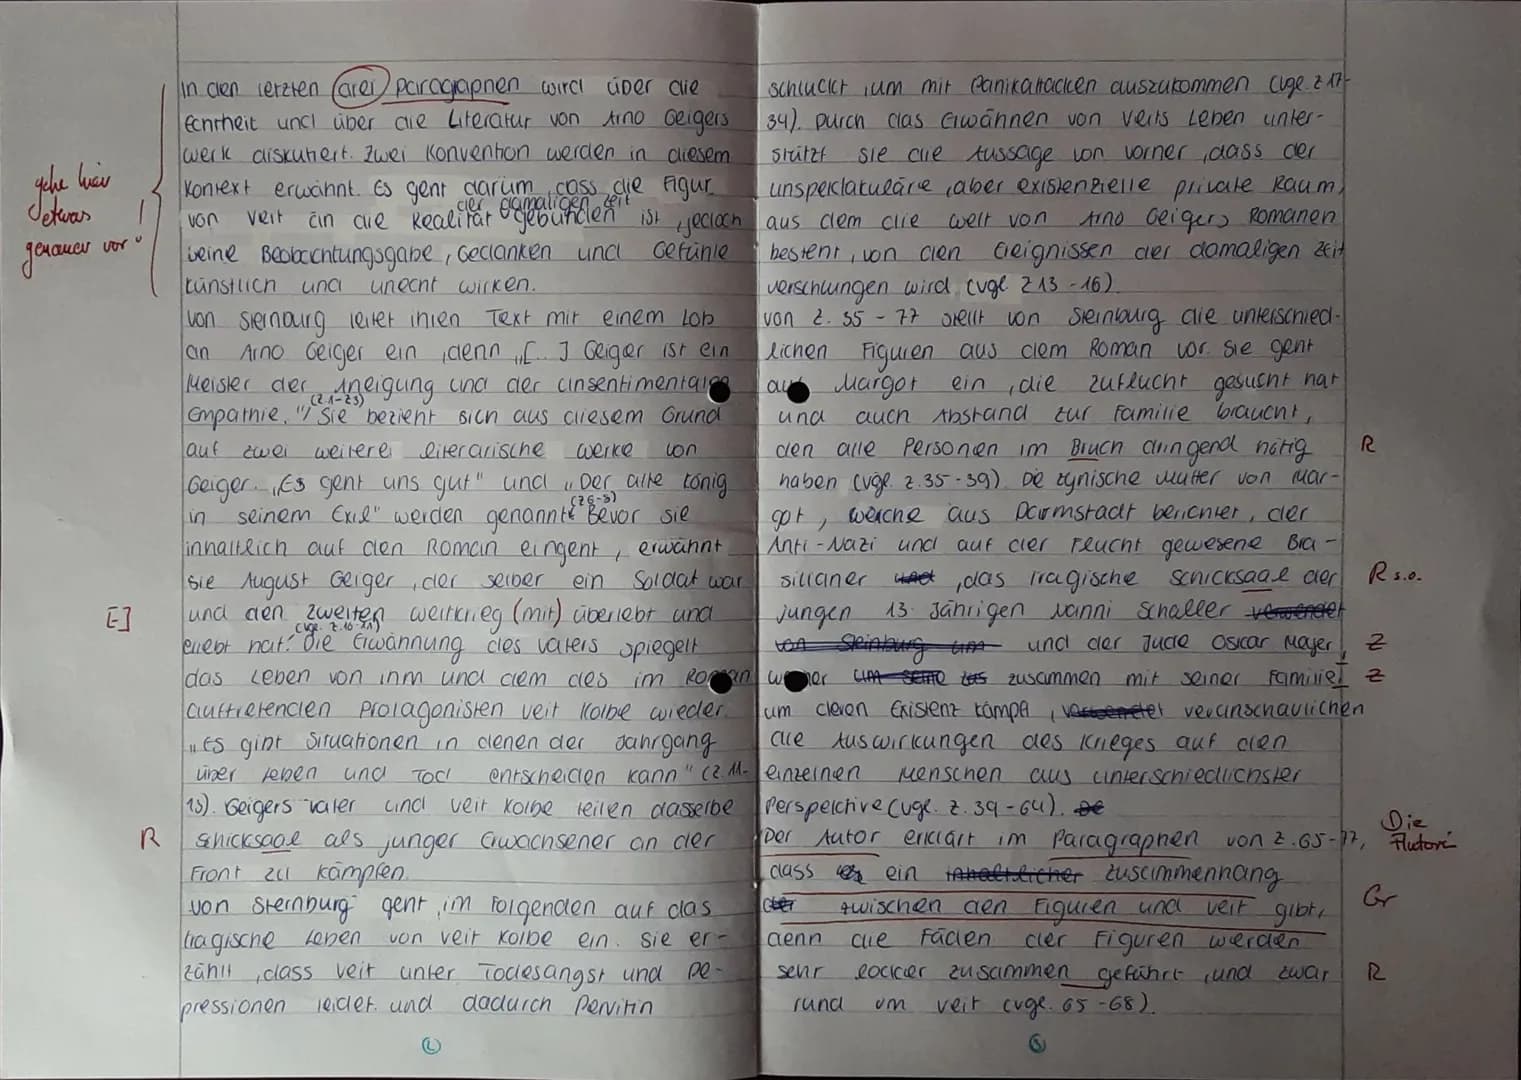 In den letzten drei Paragraphen wird über die
Echtheit und über die Literatur von Arno Geigers
Werk diskutiert. Zwei Konvention werden in diesem
Kontext erwähnt. Es geht darum, dass die Figur
der damaligen Zeit
von Veit an die Realität gebunden ist, jedoch
seine Beobachtungsgabe, Gedanken und Gefühle
künstlich und unecht wirken.
gehe hier
etwas
genauer vor!
Von Sternburg leitet ihren Text mit einem Lob
an Arno Geiger ein, denn „[...] Geiger ist ein
Meister der Aneignung und der unsentimentalen
(Z.1-23)
Empathie." Sie bezieht sich aus diesem Grund
auf zwei weitere literarische Werke von
Geiger. „Es geht uns gut" und „Der alte König
(Z6-9)
in seinem Exil" werden genannt. Bevor sie
inhaltlich auf den Roman eingeht, erwähnt
sie August Geiger, der selber ein Soldat war
[E]
und den zweiten Weltkrieg (mit) überlebt und
(vgl. Z.10-11)
erlebt hat. Die Erwähnung des Vaters spiegelt
das Leben von ihm und dem des im Roman
auftretenden Protagonisten Veit Kolbe wieder.
„Es gibt Situationen in denen der Jahrgang
über Leben und Tod entscheiden kann" (Z.11-
13). Geigers Vater und Veit Kolbe teilen dasselbe
R
Schicksaal als junger Erwachsener an der
Front zu kämpfen.
Von Sternburg geht im Folgenden auf das
tragische Leben von Veit Kolbe ein. Sie er-
zählt, dass Veit unter Todesangst und De-
pressionen leidet und dadurch Pervitin
schluckt, um mit Panikattacken auszukommen (vgl. Z 17-
34). Durch das Erwähnen von Veits Leben unter-
stützt sie die Aussage von vorher, dass der
unspektakuläre, aber existenzielle private Raum,
aus dem die Welt von Arno Geigers Romanen
besteht, von den Ereignissen der damaligen Zeit
verschlungen wird (vgl Z 13-16).
Von Z. 35-77 stellt von Steinburg die unterschied-
lichen Figuren aus dem Roman vor. Sie geht
auf Margot ein, die Zuflucht gesucht hat
und auch Abstand zur Familie braucht,
den alle Personen im Bruch dringend nötig
R
haben (vgl. Z.35-39). Die zynische Mutter von Mar-
got, welche aus Darmstadt berichtet, der
Anti-Nazi und auf der Flucht gewesene Bra-
silianer und, das tragische Schicksaal der
R s.o.
jungen 13 Jährigen Nanni Schaller verwendet
von Steinburg um und der Jude Oscar Meyer,
Z
um seine zusammen mit seiner Familie,
Z
um deren Existenz kämpft, verwendet veranschaulichen
die Auswirkungen des Krieges auf den
einzelnen Menschen aus unterschiedlichster
Perspektive (vgl. Z. 39-64).
Der Autor erklärt im Paragraphen von Z.65-77,
Die
Autorin
dass es ein inhaltlicher Zusammenhang
der zwischen den Figuren und Veit gibt,
Gr
denn die Fäden der Figuren werden
sehr locker zusammen geführt, und zwar
R
rund um Veit (vgl. 65-68).